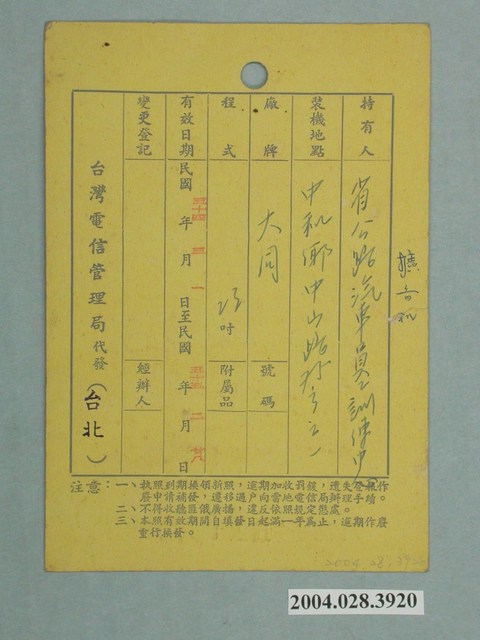 持有人
省公路汽車員工訓練中
裝機地點
中和鄉中山路
廠牌 大同 號碼
程式 吋 附屬品
有效日期 民國五十四年 三月 一日至民國五十五年 二月 廿八日
變更登記 經辦人
台灣電信管理局代發（台北）
注意：一、執照到期換領新照，逾期加收罰鍰，遺失登報作
廢申請補發，遷移過戶向當地電信局辦理手續。
二、不得收聽匪俄廣播，違反依照規定懲處。
三、本照有效期間自填發日起滿一年為止，逾期作廢
重行換發。
2004.28.3920
2004.028.3920